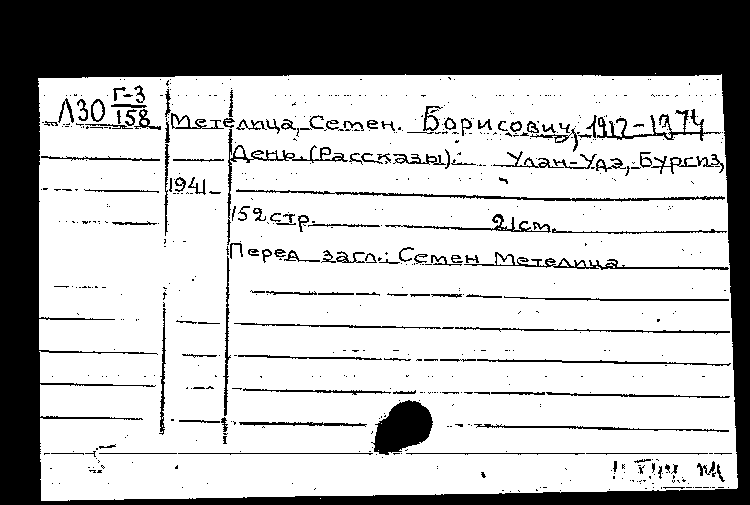 Л30 Г-3/158
Метелица, Семен. Борисович, 1912-1974
День. (Рассказы). Улан-Удэ, Бургиз,
1941.
152 стр. 21 см.
Перед загл.: Семен Метелица.